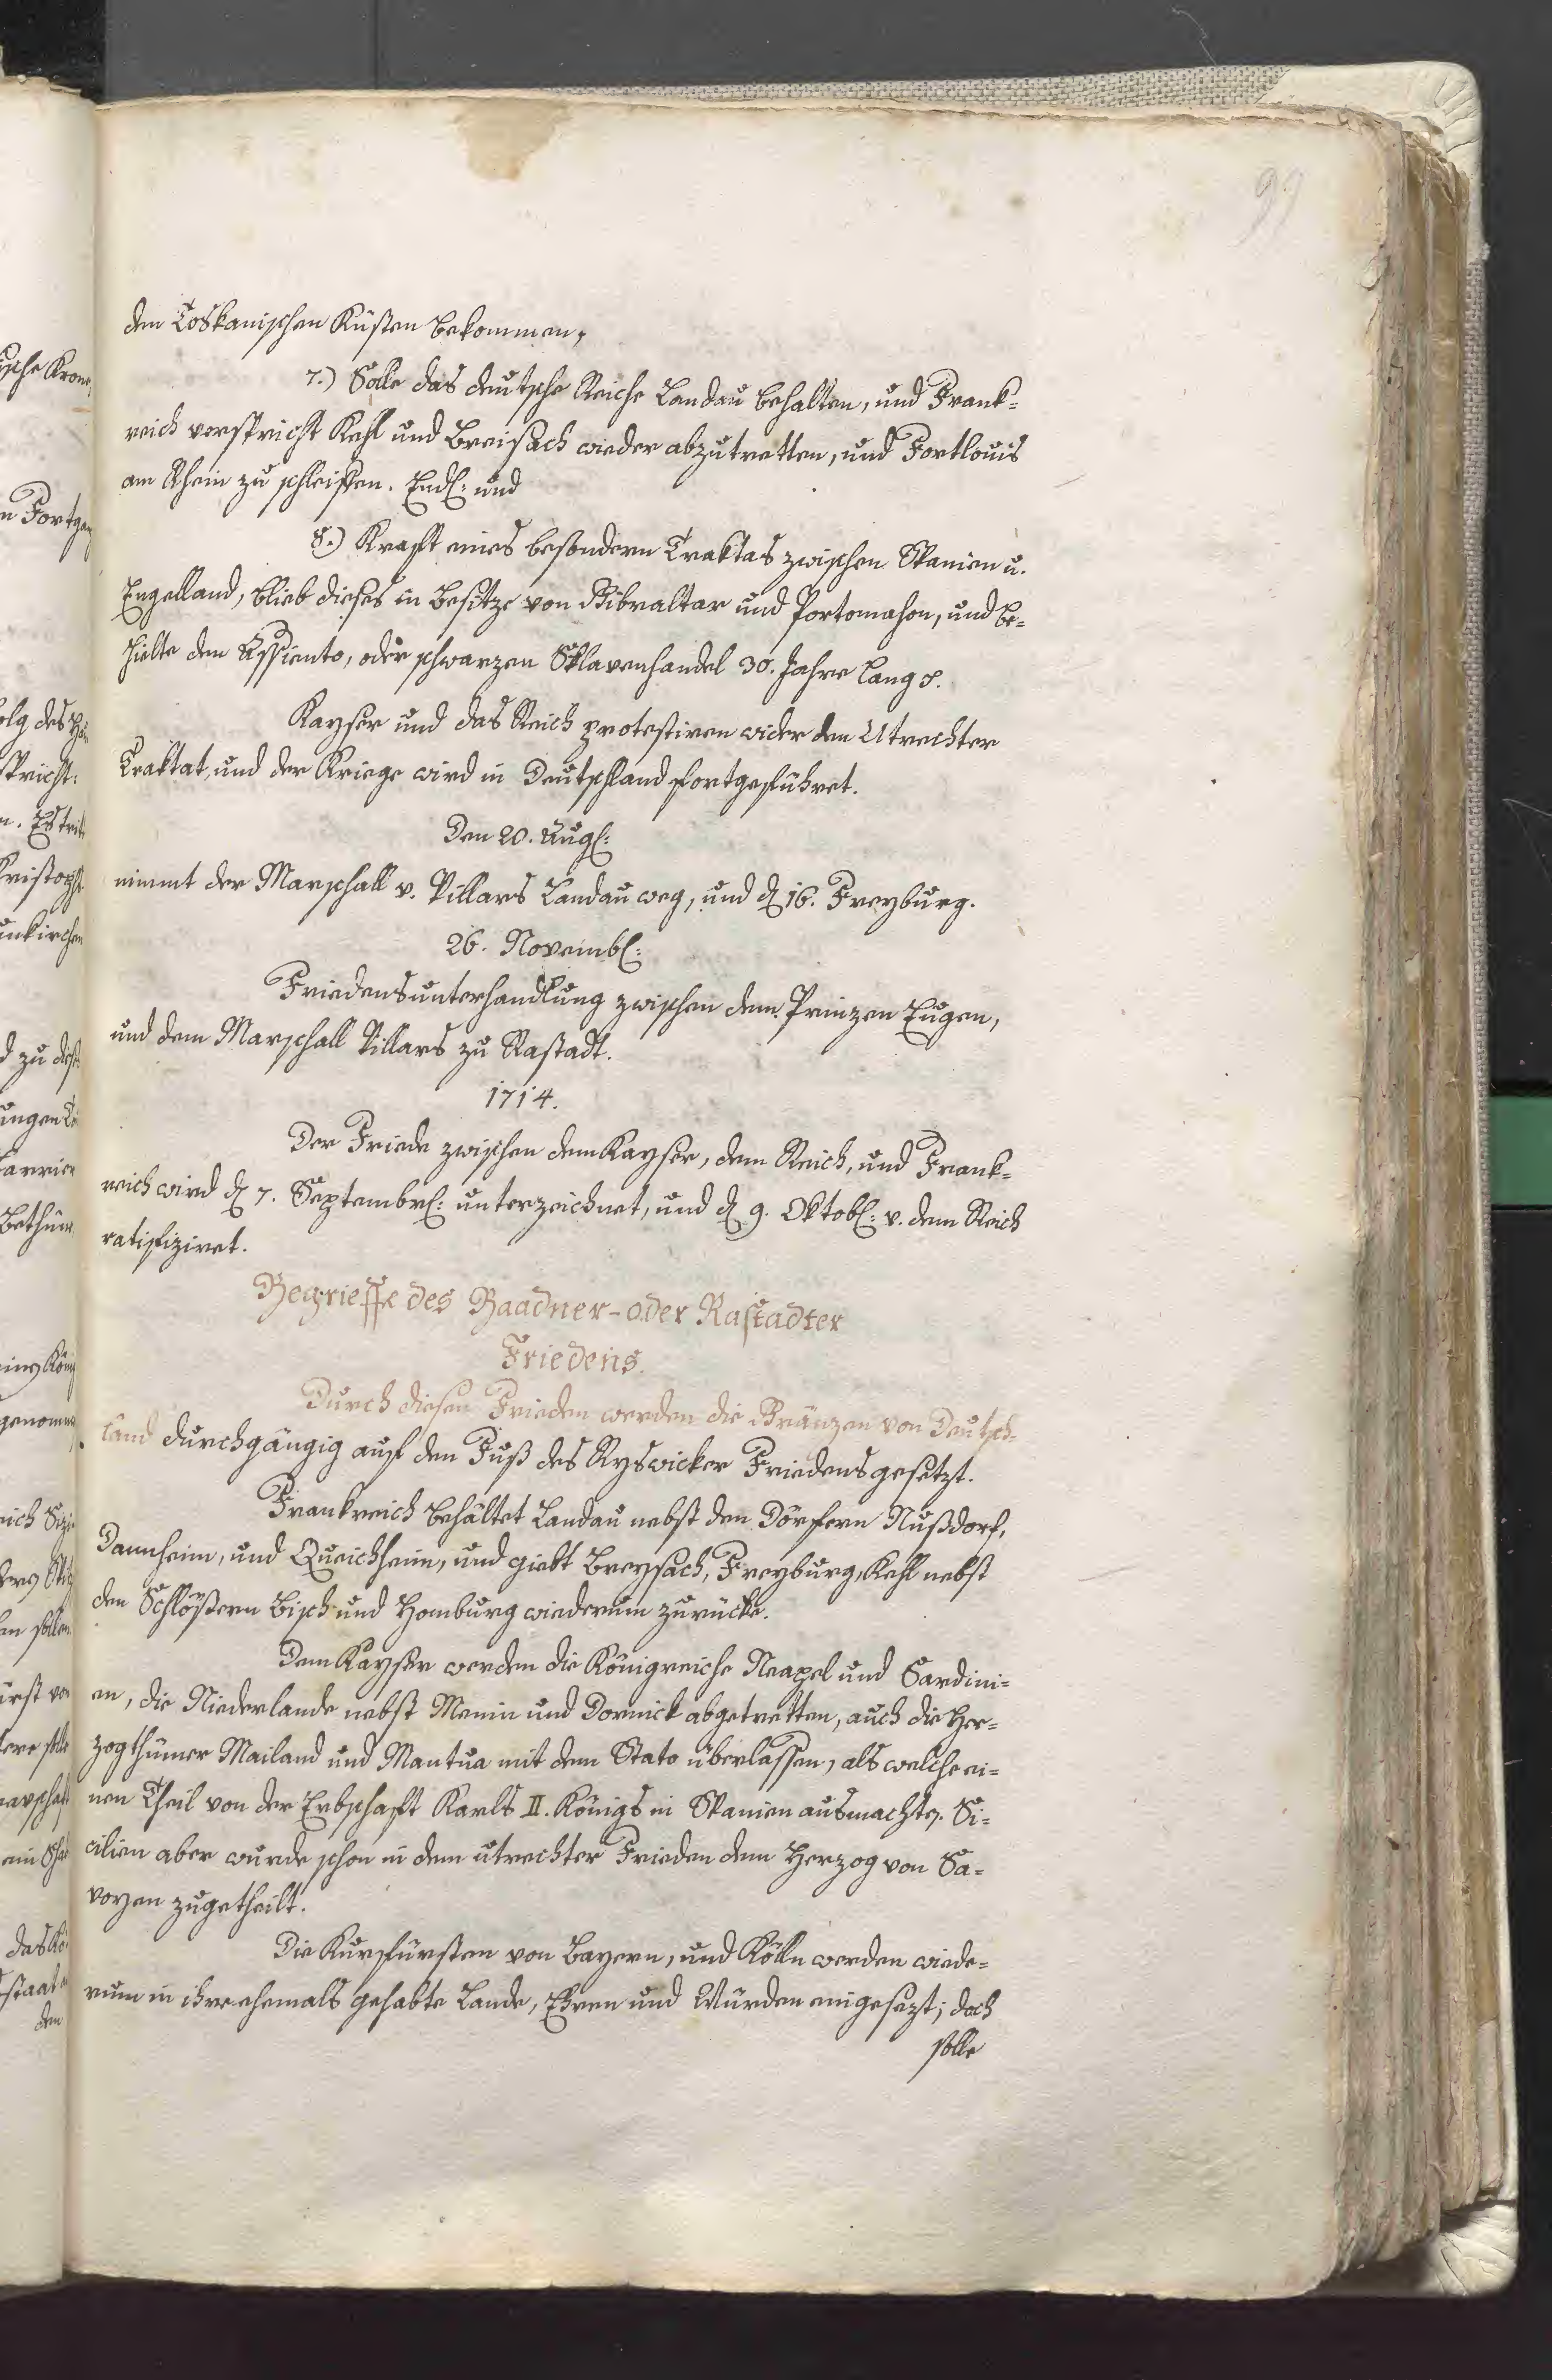 99
den Toskanischen Küsten bekommen,
7.) Solle das deutsche Reiche Landau behalten, und Frank=
reich verspricht Kehl und Breisach wieder abzutretten, und Fortlouis
am Rhein zu schleiffen. Endl: und
8.) Kraft eines besondern Traktas zwischen Spanien u.
Engelland, blieb dieses in Besitze von Gibraltar und Portomahon, und be=
hielte den Assiento, oder schwarzen Sklavenhandel 30. Jahre lang
Kayser und das Reich protestiren wider den Utrechter
Traktat, und der Kriege wird in Deutschland fortgeführet.
Den 20. Aug:
nimmt der Marschall v. Villars Landau weg, und d 16. Freyburg.
26. Novemb:
Friedensunterhandlung zwischen dem Prinzen Eugen,
und dem Marschall Villars zu Rastadt.
1714.
Der Friede zwischen dem Kayser, dem Reich, und Frank=
reich wird d 7. Septembr: unterzeichnet, und d 9. Oktob: v. dem Reich
ratifiziret.
Begrieffe des Baadner-oder Rastadter
Friedens.
Durch diesen Frieden werden die Gränzen von Deutsch=
land durchgängig auf den Fuß des Ryswicker Friedens gesetzt.
Frankreich behältet Landau nebst den Dörfern Nußdorf,
Damheim, und Queichheim, und giebt Breysach, Freyburg, Kehl nebst
den Schlößern Bisch und Homburg wiederum zurücke.
Dem Kayser werden die Königreiche Neapel und Sardini=
en, die Niederlande nebst Menin und Dornick abgetretten, auch die Her=
zogthümer Mailand und Mantua mit dem Stato überlassen, als welche ei=
nen Theil von der Erbschaft Karls II. Königs in Spanien ausmachte. Si=
cilien aber wurde schon in dem utrechter Frieden dem Herzog von Sa=
voyen zugetheilt.
Die Kurfürsten von Bayern, und Kölln werden wiede=
rum in ihre ehemals gehabte Lande, Ehren und Würden eingesezt; doch
solle